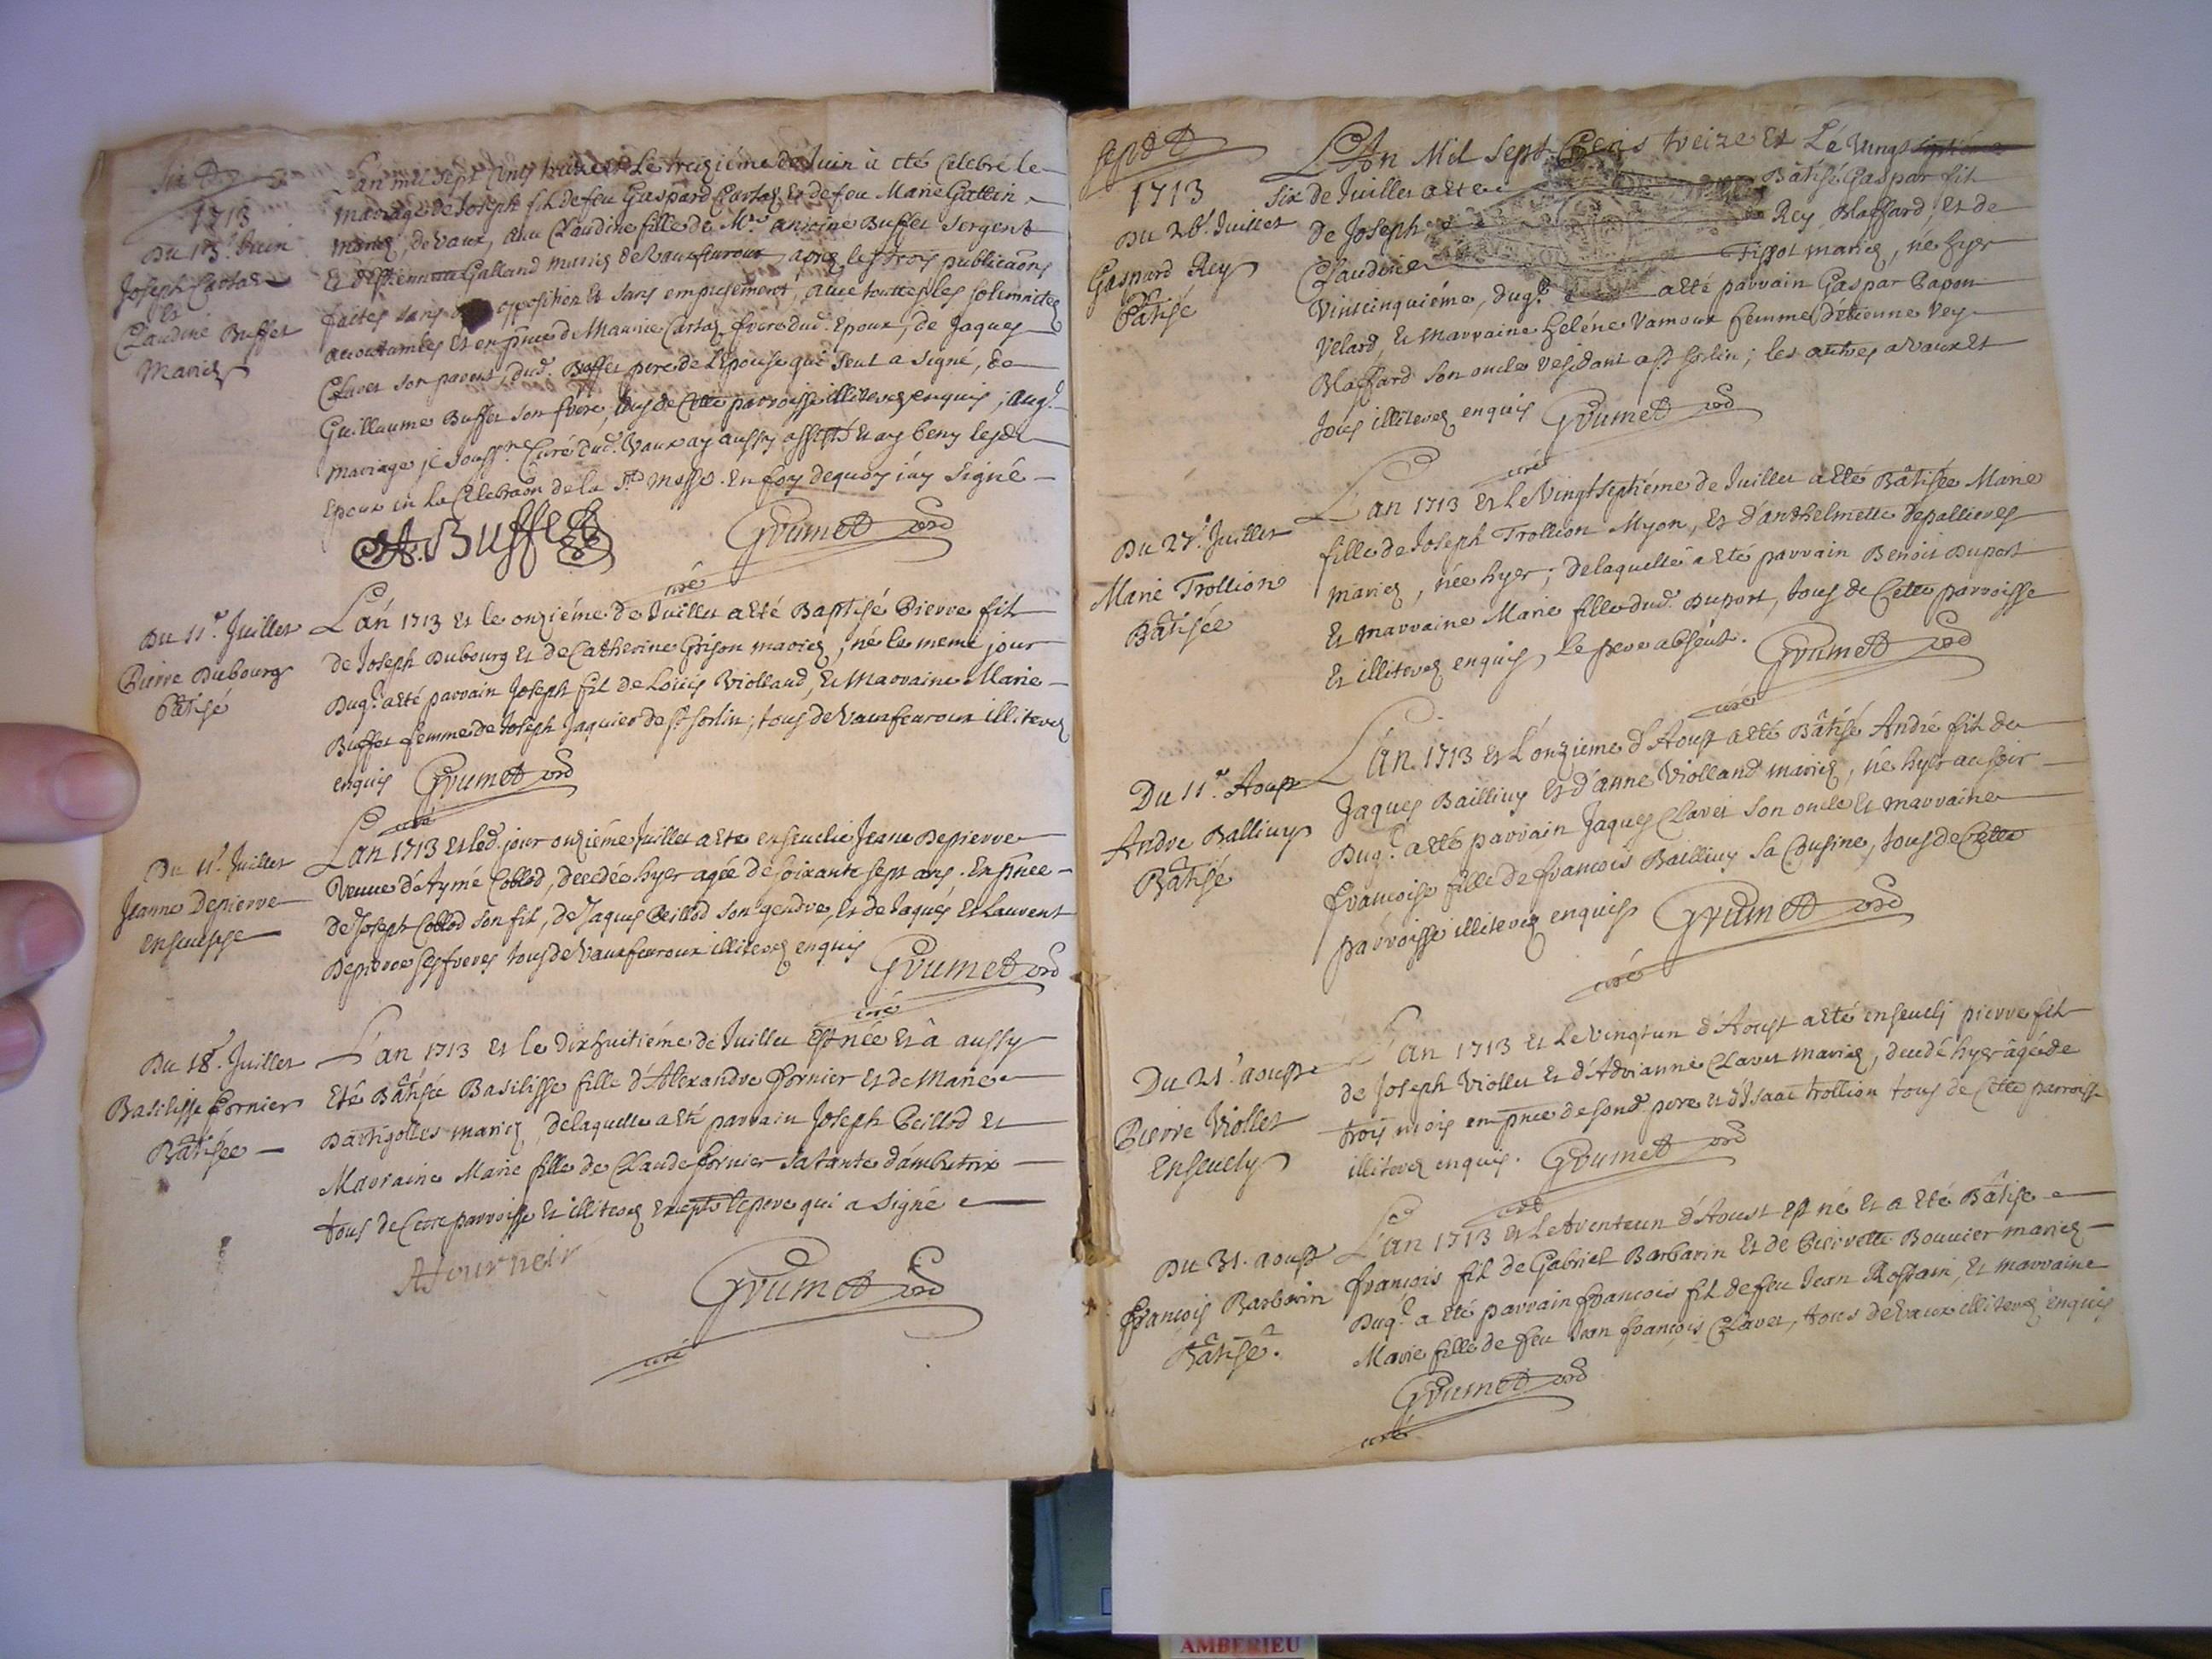 Six
1713
Du 13.e Juin
Joseph Cartaz
et
Claudine Buffet
Mariez
L'an mil sept Cents treize et Le treiziéme de Juin à été Celebré le
mariage de Joseph fil de feu Gaspard Cartaz et de feu Marie Gallien
mariez, de Vaux, avec Claudine fille de M.re antoine Buffet Sergent
et d'Estiennette Galland mariez de Vauxfevroux, après les trois publicaõns
faites sans opposition et sans empeschement, avec touttes les solemnitez
accoutumées et en p̃nce de Maurice Cartaz frere dud. Epoux, de Jaques
Clavet son parent, dud. Buffet pere de L'epouse qui seul a signé, de
Guillaume Buffet son frere, tous de Cette parroisse illiterez enquis; auq.l
mariage je souss.né Curé dud. Vaux ay aussy assisté et ay beny lesd.
Epoux en la Celebraõn de la S.te Messe. En foy dequoy j'ay signé
A. Buffet Grumet
curé
Du 11.e Juillet
Pierre Dubourg
Bâtisé
L'an 1713 et le onziéme de Juillet a Eté Baptisé Pierre fil
de Joseph Dubourg et de Catherine Grison mariez, né le meme jour
Duq.l a eté parrain Joseph fil de Loüis Violland, et Marraine Marie
Buffet femme de Joseph Jaquier de S.t Sorlin; tous de Vauxfevroux illiterez
enquis Grumet
curé
Du 11.e Juillet
Jeanne Depierre
enseuelie
L'an 1713 et led. jour onziéme Juillet a Eté enseuelie Jeanne Depierre
Veuue d'Aymé Collod, decedée hyer agée de soixante sept ans. En p̃nce
de Joseph Collod son fil, de Jaques Beillod son gendre, et de Jaques et Laurent
Depierre ses freres tous de Vauxfevroux illiterez enquis Grumet
curé
Du 18.e Juillet
Basilisse Fornier
Bâtisée
L'an 1713 et le dixhuitiéme de Juillet est née et à aussy
Eté Bâtisée Basilisse fille d'Alexandre Fornier et de Marie
Dartigolles mariez, de laquelle a eté parrain Joseph Beillod et
Marraine Marie fille de Claude fornier sa tante d'ambutrix
tous de Cette parroisse et illiterez Excepté le pere qui a signé
AFournier
Grumet
curé
sept
1713
Du 26.e Juillet
Gaspard Rey
Bâtisé
L'An Mil Sept Cens treize et Lé Vingt
Six de Juillet a Eté Bâtisé Gaspar fil
de Joseph Rey Blaffard, et de
Claudine Tissot mariez, né hyer
Vintcinquiéme, duq.l a eté parrain Gaspar Papon
Velard, et Marraine Heléne Vamoux femme d'étienne Rey
Blaffard son oncle residant a S.t Sorlin; les autres a Vaux et
tous illiterez enquis Grumet
curé
Du 27.e Juillet
Marie Trollion
Bâtisée
L'an 1713 et Le Vingtseptiéme de Juillet a Eté Bâtisée Marie
fille de Joseph Trollion Myon, et d'anthelmette Depallieres
mariez, née hyer; de laquelle a eté parrain Benoit Duport
et marraine Marie fille dud. Duport, tous de Cette parroisse
et illiterez enquis, le pere absent. Grumet
curé
Du 11.e Aoust
Andre Balliuy
Bâtisé
L'an 1713 et L'onzieme d'Aoust a Eté Bâtisé André fil de
Jaques Bailliuy et d'anne Violland mariez, né hyer au soir
Duq.l a eté parrain Jaques Clavet son oncle et marraine
Francoise fille de francois Bailliuy sa Cousine, tous de Cette
parroisse illiterez enquis Grumet
curé
Du 21.e aoust
Pierre Viollet
Enseuely
L'an 1713 et Le vingtun d'Aoust a eté enseueli pierre fil
de Joseph Viollet et d'Adrianne Clavet mariez, decedé hyer agé de
trois mois en p̃nce de sond. pere et d'Isaac trollion tous de Cette parroisse
illiterez enquis. Grumet
curé
Du 31. aoust
François Barbarin
Bâtisé.
L'an 1713 et Le trenteun d'Aoust est né et a Eté Bâtisé
François fil de Gabriel Barbarin et de Pierrette Bouuier mariez
Duq.l a eté parrain francois fil de feu Jean Rostain, et marraine
Marie fille de feu Jean François Clavet, tous de Vaux illiterez enquis
Grumet
curé
AMBERIEU